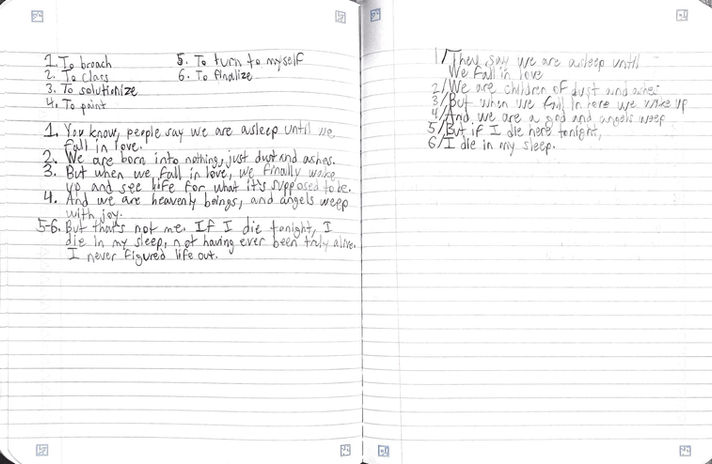 1. To broach
2. To class
3. To solutionize
4. To paint
5. To turn to myself
6. To finalize
1. You know, people say we are asleep until we
fall in love.
2. We are born into nothing, just dust and ashes.
3. But when we fall in love, we finally wake
up and see life for what it's supposed to be.
4. And we are heavenly beings, and angels weep
with joy.
5-6. But that's not me. If I die tonight, I
die in my sleep, not having ever been truly alive.
I never figured life out.
1/ They say we are asleep until
We fall in love
2/ We are children of dust and ashes
3/ But when we fall in love we wake up
4/ And, we are a god and angels weep
5/ But if I die here tonight,
6/ I die in my sleep.